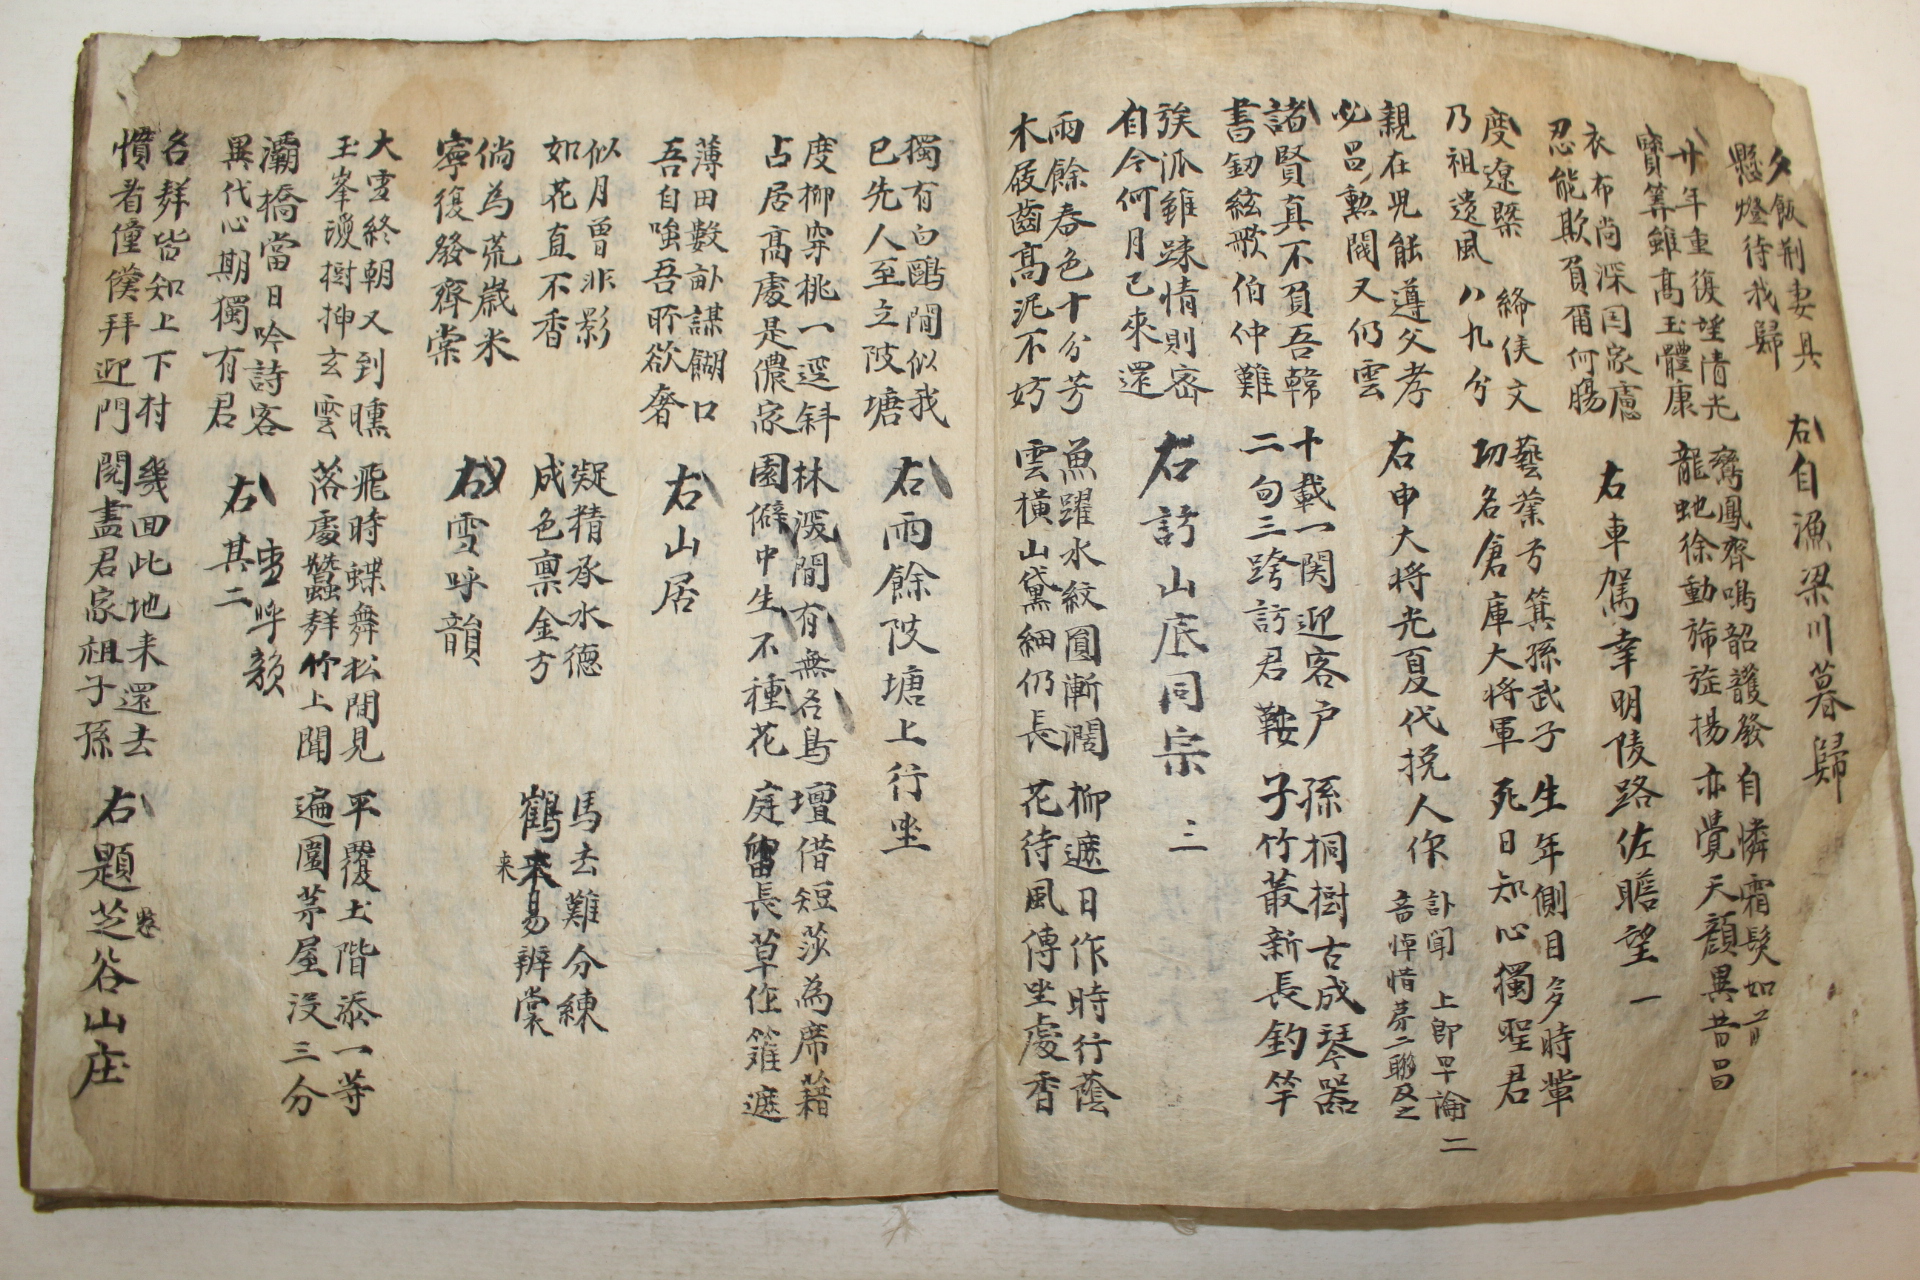 夕飯荊妻具
懸燈待我歸
右自漁梁川暮歸
廿年重復埀清光 鸞鳳齊鳴韶頀發 自憐霜髮如前
寶筭雖高玉體康 龍虵徐動旆旌揚 亦覺天顔異昔昌
衣布尚深囯家慮
忍能欺負爾何腸
右車駕幸明陵路佐瞻望 一
度遼槩 絳侯文 藝業方箕孫武子 生年側日多時輩
乃祖遺風八九分 功名倉庫大將軍 死日知心獨聖君
親在兇能遵父孝
必因勲閥又仍雲
右申大將光夏代挽人作
訃聞 上卽早論
音悼惜 二聯及之
二
諸賢真不負吾韓 十載一関迎客户 孫桐樹古成琴器
書釰絃歌伯仲難 二旬三跨訪君鞍 子竹叢新長釣竿
族派雖踈情則密
自今何月已來還
右訪山底同宗 三
雨餘春色十分芳 魚躍水紋圓漸濶 柳遮日作時行蔭
木屐齒高泥不妨 雲橫山黛細仍長 花待風傳坐處香
獨有白鷗閒似我
已先人至立陂塘
右雨餘陂塘上行坐
度柳穿桃一逕斜 林深間有無名鳥 壇借短莎為席藉
占居高處是儂家 園僻中生不種花 庭留長草作籬遮
薄田數畝謀餬口
吾自嗤吾所欲奢
右山居
似月曾非影 凝精承水德 馬去難分練
如花直不香 成色禀金方 鶴來易辨裳
来
倘為荒歲米
寧復發齊棠
右雪呼韻
大雪終朝又到曛 飛時蝶舞松間見 平覆土階添一等
玉峯瓊樹抻玄雲 落處蠶群竹上聞 遍圍茅屋没三分
灞橋當日吟詩客
異代心期獨有君
右其二
雪呼韻
各群皆知上下村 幾回此地来還去
慣看僮僕拜迎門 閱盡君家祖子孫
右題芝谷山庄